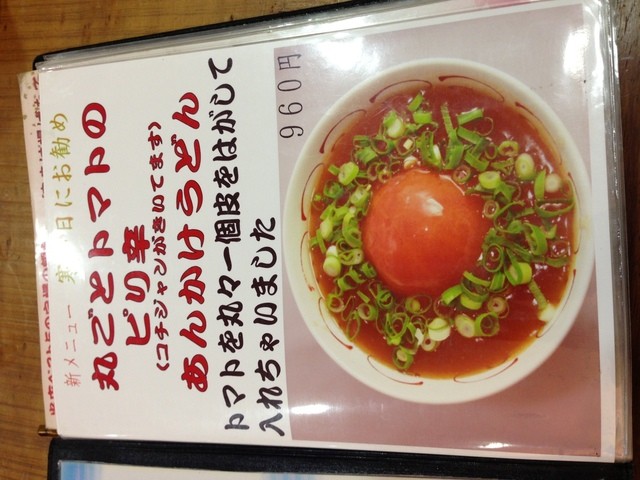 新メニュー 寒い日にお勧め
丸ごとトマトの
ピリ辛
(コチジャンがきいてます)
あんかけうどん
トマトを丸々一個皮をはがして
入れちゃいました
960円